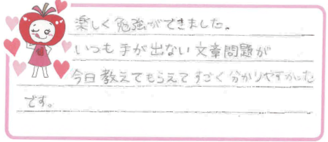 楽しく勉強ができました。
いつも手が出ない文章問題が
今日教えてもらえてすごく分かりやすかった
です。